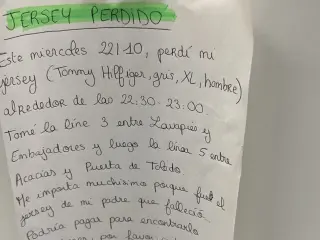 JERSEY PERDIDO
Este miercoles 22/10, perdí mi
jersey (Tommy Hilfiger, gris, XL, hombre)
alrededor de las 22:30 - 23:00
Tomé la line 3 entre Lavapiés y
Embajadores y luego la linea 5 entre
Acacias y Puerta de Toledo
Me importa muchisimo porque fue el
jersey de mi padre que falleció
Podría pagar para encontrarlo
por favor